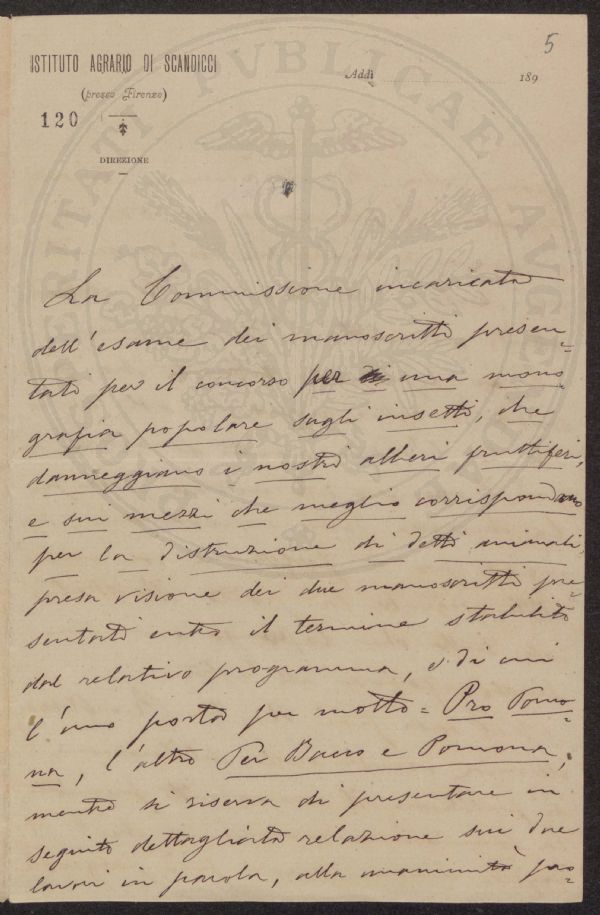 5
ISTITUTO AGRARIO DI SCANDICCI
(presso Firenze)
120
DIREZIONE
Addì 189
La Commissione incaricata
dell'esame dei manoscritti presen-
tati per il concorso per una mono-
grafia popolare sugli insetti, che
danneggiano i nostri alberi fruttiferi,
e sui mezzi che meglio corrispondono
per la distruzione di detti animali,
presa visione dei due manoscritti pre-
sentati entro il termine stabilito
dal relativo programma, e di cui
l'uno porta per motto = Pro Pomo-
na, l'altro Per Bacco e Pomona,
mentre si riserva di presentare in
seguito dettagliata relazione sui due
lavori in parola, alla unanimità pro-